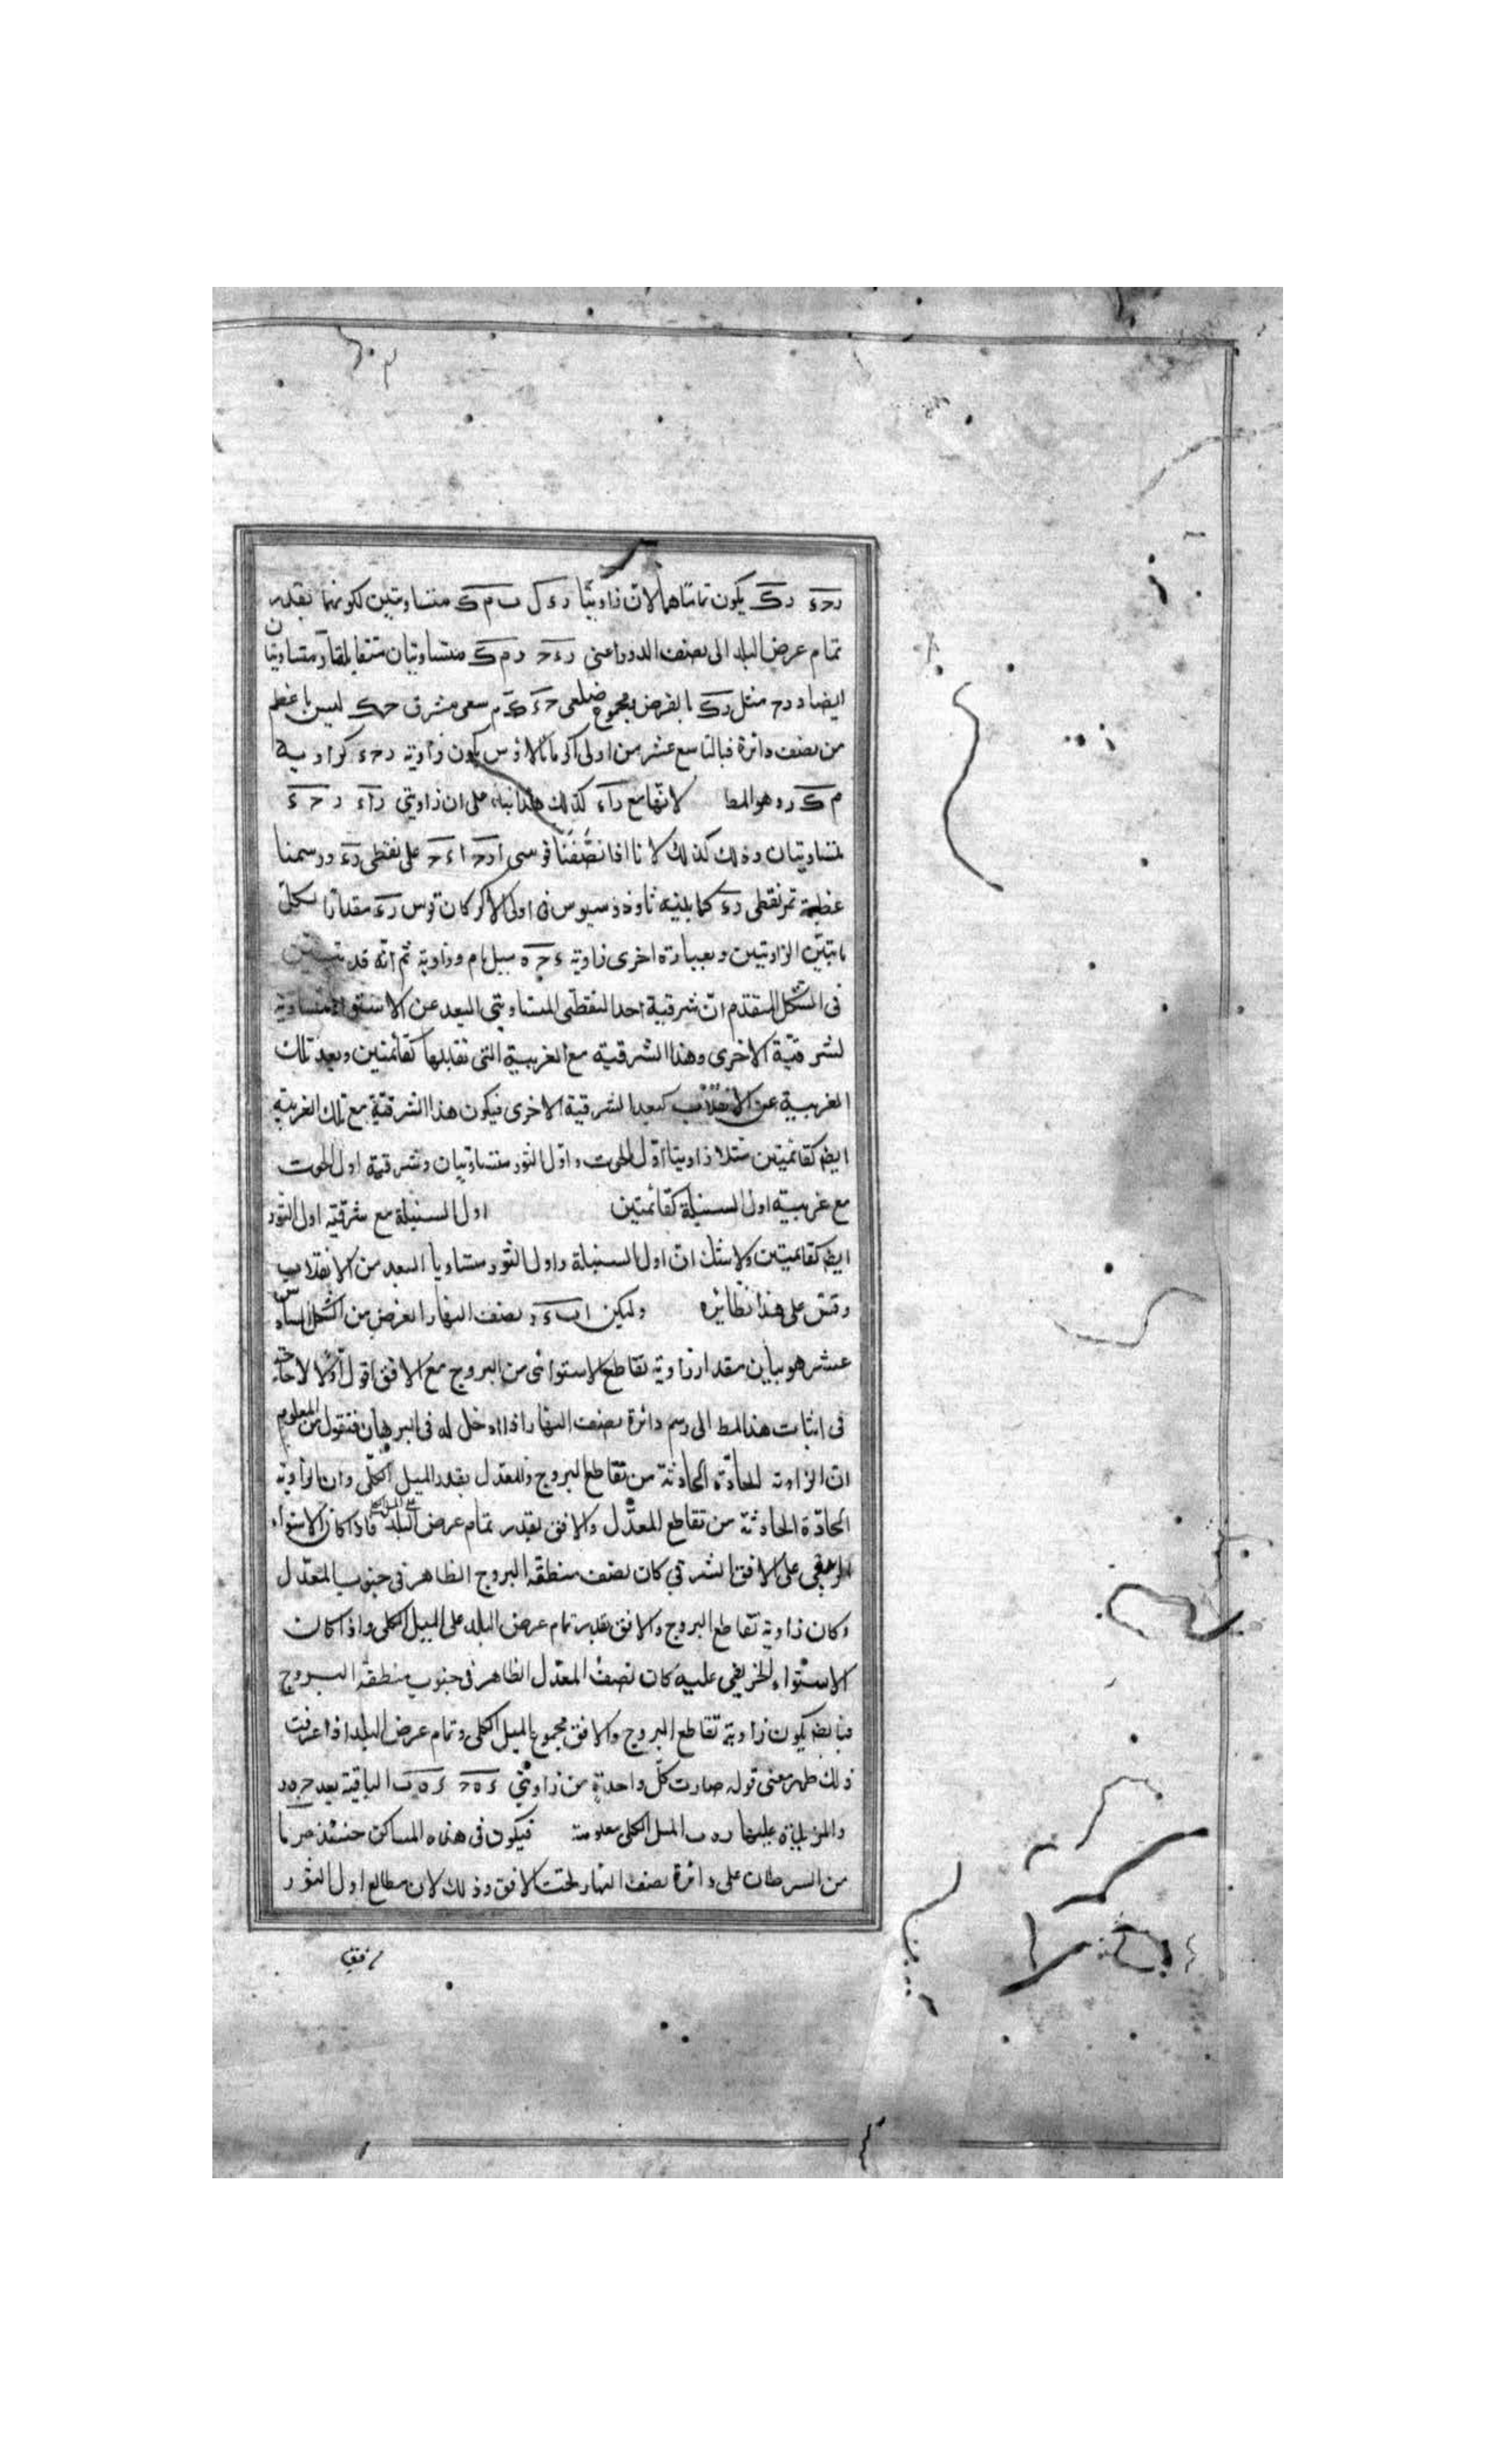 رحء رك يكون تماساهما لان زاويتا دءل ب م ك متساويتين لكونهما بقدر
تمام عرض البلد الى نصف الدور اعنى رءح رم ك متساويتان متقابلتان متساويتان
ايضا و رح مثل رك بالفرض مجموع ضلعى حء ك م سعى مشرق ح ك ليس باعظم
من نصف دائرة فبالتاسع عشر من اولى اكر مانالاوس يكون زاوية رحء كزاوية
م ك ر وهو المط لانها مع راء كذلك هذا بناء على ان زاويتى راء رحء
متساويتان وذلك كذلك لانا اذا نصفنا قوسى ارح اءح على نقطى رء ورسمنا
عظيمة تمر بنقطى رء كما بينه ثاوذوسيوس فى اولى الاكر كان قوس رء مقدارا لكل
ماتين الزاويتين وبعبارة اخرى زاوية ءحه ميل تام وزاوية ثم انه قد تبين
فى الشكل المتقدم ان شرقية احد النقطتى المتساويتى البعد عن الاستواء متساوية
لشرقية الاخرى وهذا الشرقية مع الغربية التى تقابلها كقائمتين وبعد تلك
الغربية عن الانقلاب كبعد الشرقية الاخرى فيكون هذا الشرقية مع تلك الغربية
ايضا كقائمتين مثلا زاويتا اول الحوت و اول الثور متساويتان وشرقية اول الحوت
مع غربية اول السنبلة كقائمتين اول السنبلة مع شرقية اول الثور
ايضا كقائمتين ولا شك ان اول السنبلة واول الثور متساويا البعد من الانقلاب
وقس على هذا نظائره وليكن ابءد نصف النهار الغرض من الشكل السادس
عشر هو بيان مقدار زاوية تقاطع الاستوائى من البروج مع الافق اقول اولا لا حاجة
فى اثبات هذا المط الى رسم دائرة نصف النهار اذ لا دخل له فى البرهان فنقول من المعلوم
ان الزاوية الحادة الحادثة من تقاطع البروج والمعدل بقدر الميل الكلى وان الزاوية
الحادة الحادثة من تقاطع المعدل والافق بقدر تمام عرض البلد فاذا كان الاستواء
الربيعى على الافق الشرقى كان نصف منطقة البروج الظاهر فى جنوب المعدل
وكان زاوية تقاطع البروج والافق بقدر تمام عرض البلد على الميل الكلى واذا كان
الاستواء الخريفى عليه كان نصف المعدل الظاهر فى جنوب منطقة البروج
فبالضم يكون زاوية تقاطع البروج والافق مجموع الميل الكلى وتمام عرض البلد اذا عرفت
ذلك ظهر معنى قوله صارت كل واحدة من زاويتى ءهح ءهب الباقية بعد حهد
والمزيدة عليها ده ب الميل الكلى معلومة فيكون فى هذه المساكن حينئذ جزء ما
من السرطان على دائرة نصف النهار تحت الافق وذلك لان مطالع اول الثور